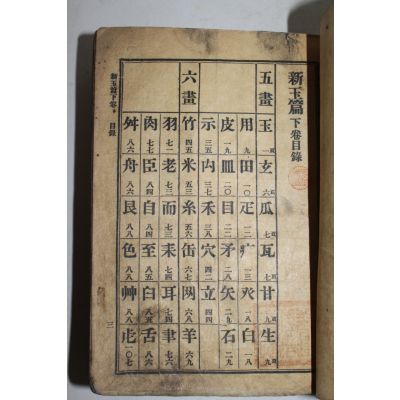 新玉篇下卷目錄
五畫 玉 一 玄 六 瓜 七 瓦 七 甘 九 生 九
用 田 一〇 疋 一二 疒 一三 癶 一八 白 一八
皮 一九 皿 二〇 目 二一 矛 矢 二八 石 二九
示 三五 禸 三七 禾 三八 穴 四二 立 四四
六畫 竹 四五 米 五三 糸 五六 缶 六七 网 六八 羊 六九
羽 七一 老 七三 而 七三 耒 七四 耳 七四 聿 七六
肉 七七 臣 八四 自 八四 至 八五 臼 八五 舌 八六
舛 八六 舟 八六 艮 八八 色 八八 艸 八八 虍 一〇七
新玉篇下卷 目錄 三